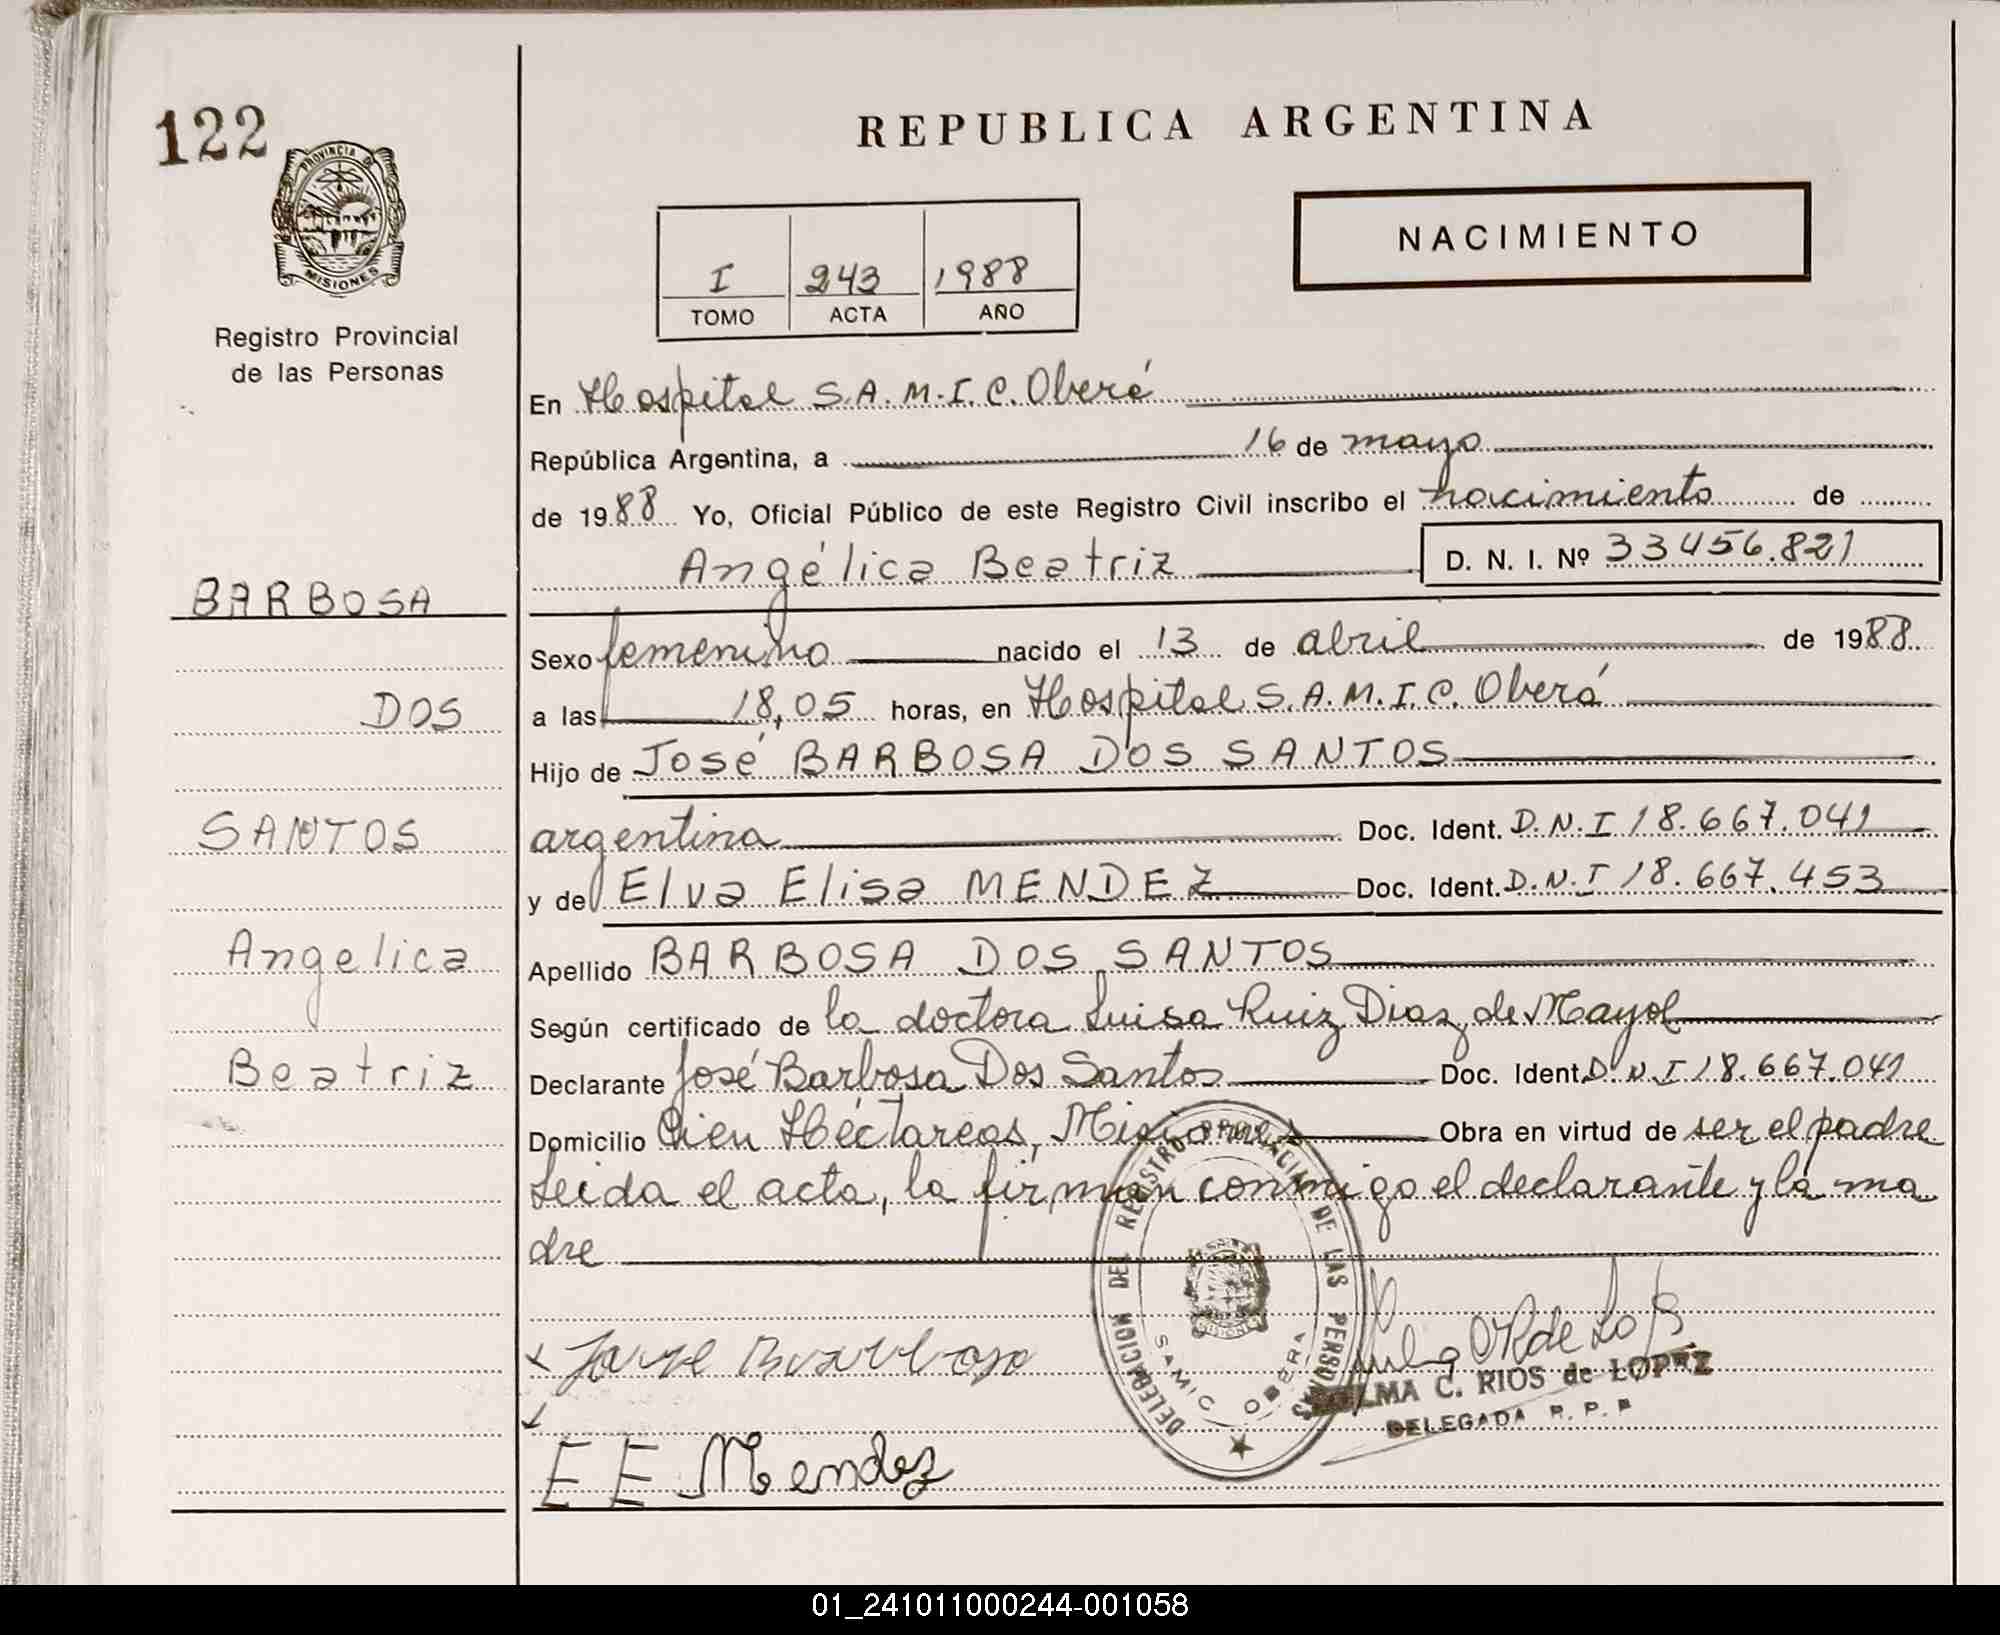 122
PROVINCIA DE
MISIONES
Registro Provincial
de las Personas
BARBOSA
DOS
SANTOS
Angelica
Beatriz
REPUBLICA ARGENTINA
NACIMIENTO
I 243 1988
TOMO ACTA AÑO
En Hospital S.A.M.I.C. Oberá
República Argentina, a 16 de mayo
de 1988 Yo, Oficial Público de este Registro Civil inscribo el nacimiento de
Angélica Beatriz D. N. I. Nº 33456.821
Sexo femenino nacido el 13 de abril de 1988
a las 18,05 horas, en Hospital S.A.M.I.C. Oberá
Hijo de José BARBOSA DOS SANTOS
argentina Doc. Ident. D.N.I 18.667.041
y de Elva Elisa MENDEZ Doc. Ident. D.N.I 18.667.453
Apellido BARBOSA DOS SANTOS
Según certificado de la doctora Luisa Ruiz Diaz de Mayol
Declarante José Barbosa Dos Santos Doc. Ident. D.N.I 18.667.041
Domicilio Cien Héctareas, Misiones Obra en virtud de ser el padre
Leida el acta, la firman conmigo el declarante y la ma
dre
DELEGACION DEL REGISTRO PROVINCIAL DE LAS PERSONAS
SAMIC OBERA
Barbosa
C. RIOS de LOPEZ
DELEGADA R. P. P
E E Mendez
01_241011000244-001058